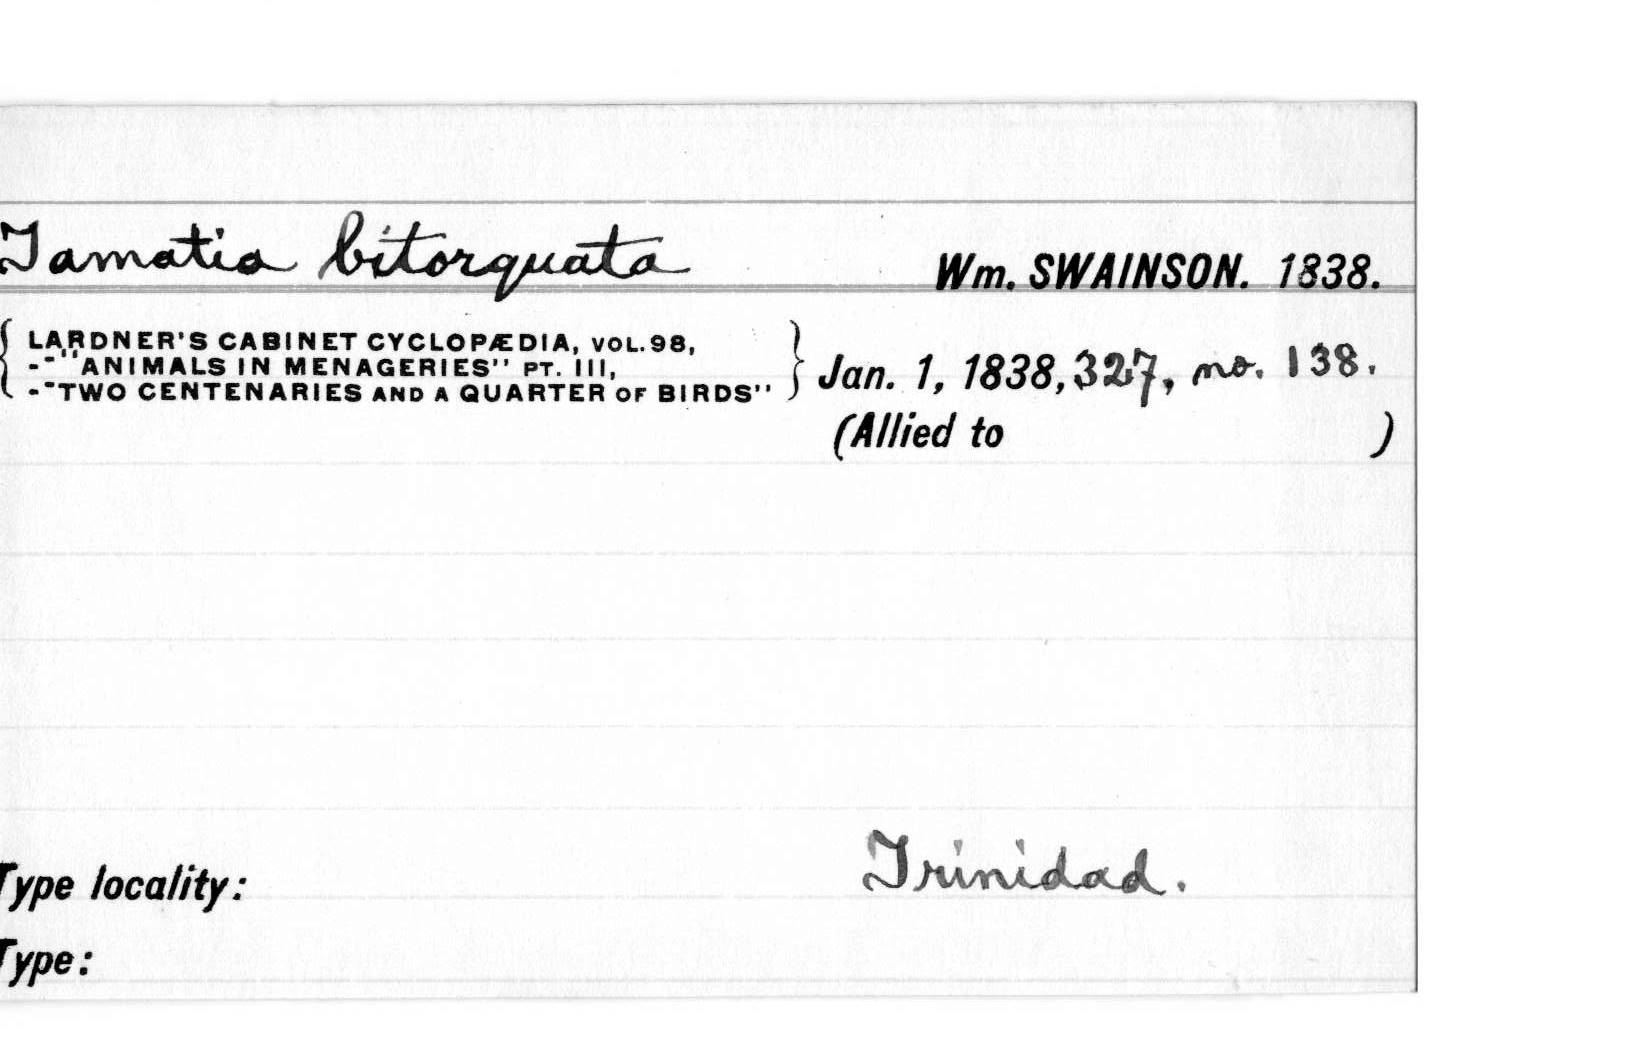 Tamatia bitorquata Wm. SWAINSON. 1838.
LARDNER'S CABINET CYCLOPÆDIA, VOL. 98,
-"ANIMALS IN MENAGERIES" PT. III,
-"TWO CENTENARIES AND A QUARTER OF BIRDS"
Jan. 1, 1838, 327, no. 138.
(Allied to )
Type locality: Trinidad.
Type: